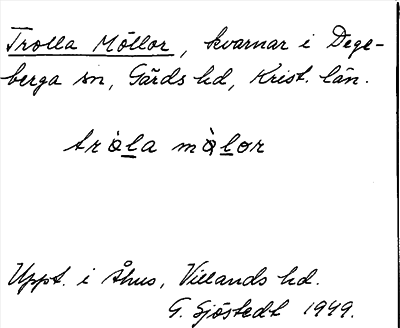 Trolla Möllor, kvarnar i Dege-
berga sn, Gärds hd, Krist. län.
tròl̲a mòl̲or
Uppt. i Åhus, Villands hd.
G. Sjöstedt 1949.